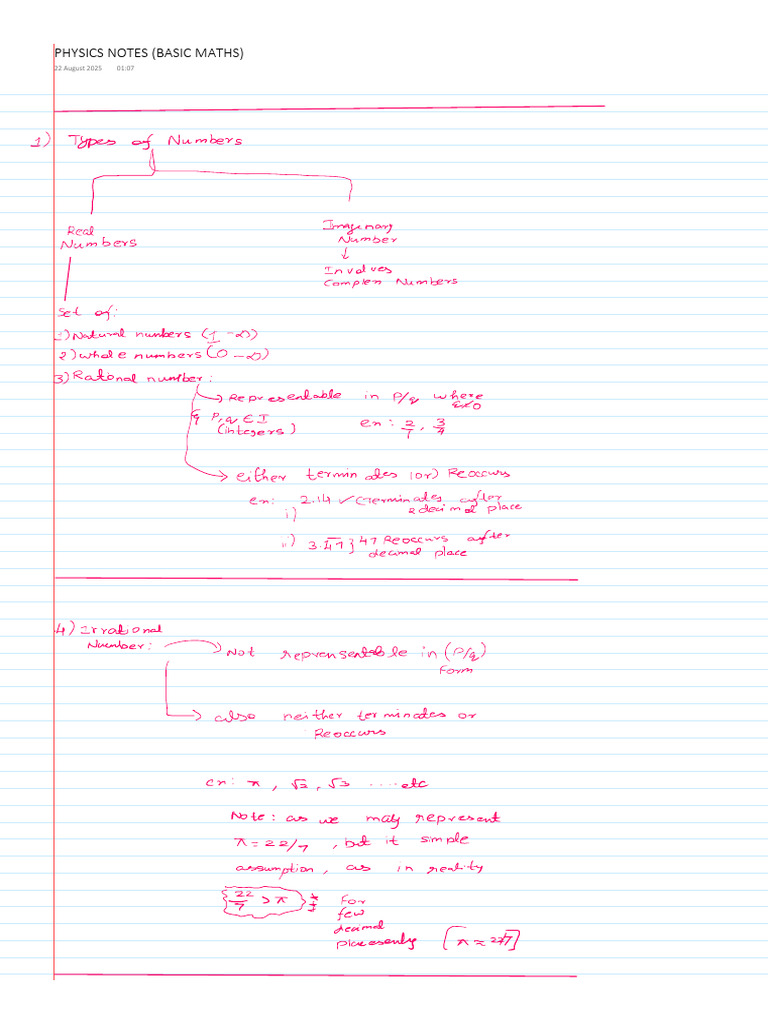 PHYSICS NOTES (BASIC MATHS)
22 August 2025 01:07
1) Types of Numbers
Real
Numbers
Imaginary
Number
↓
Involves
Complen Numbers
Set of:
1) Natural numbers (1 - ∞)
2) whole numbers (0 - ∞)
3) Rational number:
Representable in P/q where
q≠0
& P, q ∈ I
(integers)
en: 2/7, 3/4
either terminates (or) Reoccurs
en: 2.14 ✓ (terminates after
2 decimal place
i)
ii) 3.47 } 47 Reoccurs after
decimal place
4) Irrational
Number:
Not reprensentable in (P/q)
form
also neither terminates or
Reoccurs
en: π, √2, √3 .....etc
Note: as we may represent
π = 22/7, but it simple
assumption, as in reality
{22/7 > π}
For
few
decimal
places only [π ≈ 22/7]